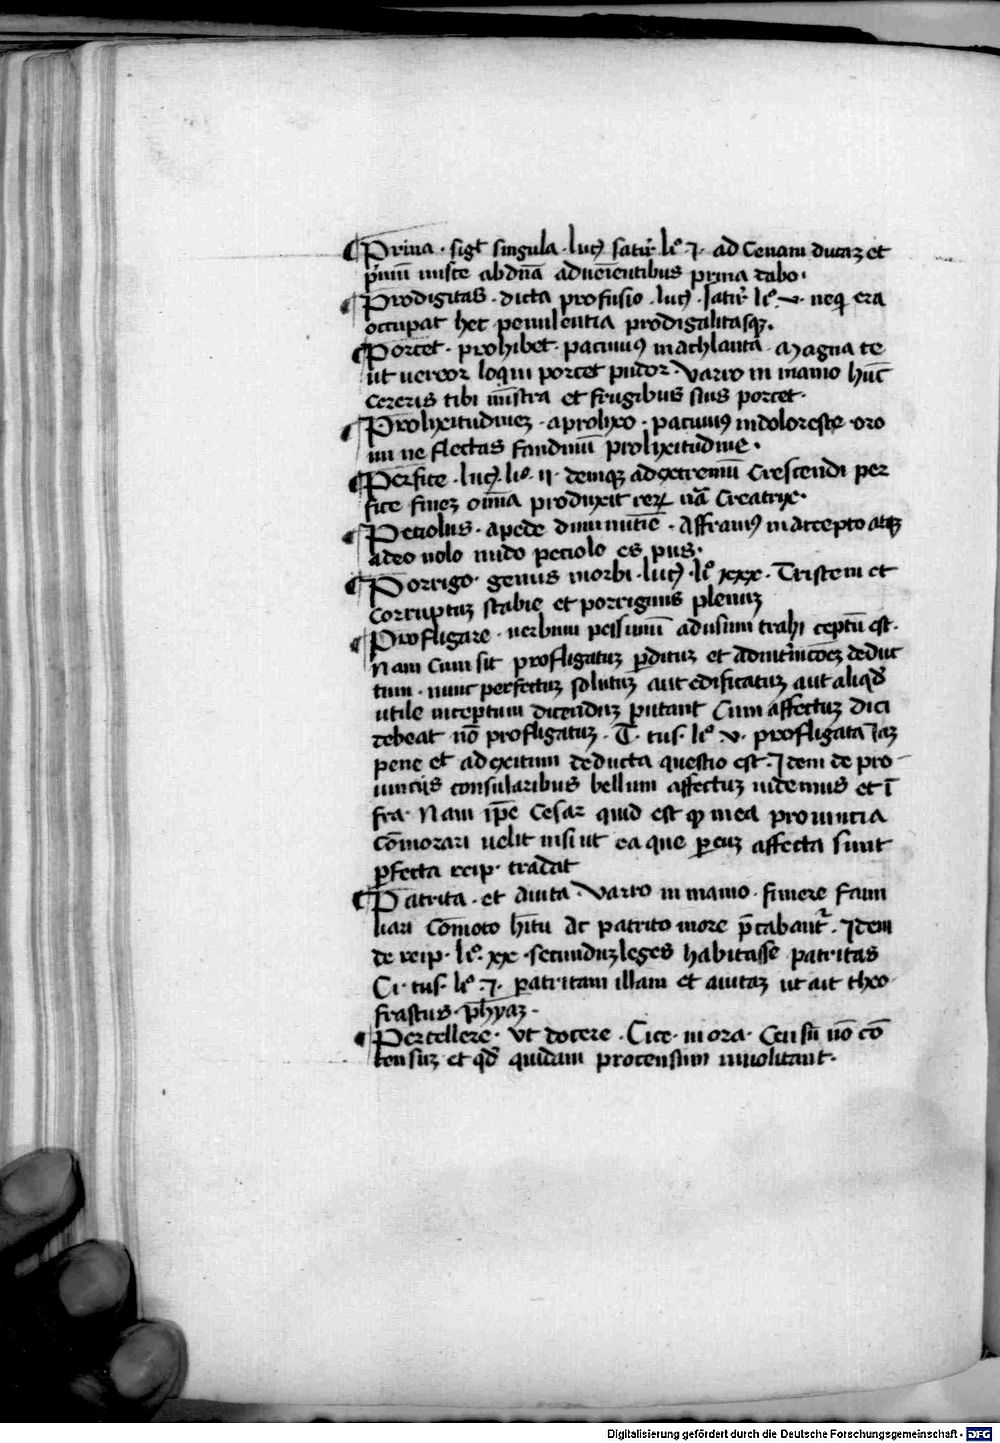 ¶ Priua · sigͭ singula · lucꝰ satir̄ liº ⁊ · ad Cenam ducaꝫ et
p̄mū uiste abdn̄a aduēientibus priua dabo ·
¶ Prodigitas · dicta profusio · lucꝰ · satir̄ liº v · neqꝫ era
occupat hec penulentia prodigalitasqꝫ ·
¶ Porcet · prohibet · pacuuiꝰ in achlanta · Magna te
ut uereor loqui porcet pudor · Varro in manio hūc
Cereris tibi mīstra et frugibus suis porcet ·
¶ Prolixitudineꝫ · a prolixo · pacuuiꝰ in doloreste · oro
mi ne flectas fandinū prolixitudine ·
¶ Perfice · lucꝰ liº · ii · deniqꝫ ad extremū Crescendi per
fice fineꝫ oīnia produxit reꝝ nā Creatrix ·
¶ Peciolus · a pede diminutiē · Affraniꝰ in accepto atqꝫ
adeo nolo nudo peciolo es pus ·
¶ Porrigo · genus morbi · lucꝰ · liº xxx · Tristem et
Corruptuꝫ scabie et porriginis plenuꝫ
¶ Profligare · uerbum pessimū ad usum trahi ceptū est ·
Nam Cum sit profligatuꝫ ꝑdituꝫ et deduc
tum · nunc perfectuꝫ solutuꝫ aut edificatuꝫ aut aliqd̄
utile inceptum dicenduꝫ putant Cum affectuꝫ dici
debeat nō profligatuꝫ · T · tus · liº v · profligata iaꝫ
pene et ad exitum deducta questio est · Idem de pro
uinciis consularibus bellum affectuꝫ uidemus et ī
fra · Nam ip̄e Cesar quid est qꝫ in ea prouincia
Cōmorari uelit nisi ut ea que ꝑ euꝫ affecta sunt
ꝑfecta reip · tradat
¶ Patrita · et Auita · Varro in manio · funere fami
liari Cōmoto h̄itu Ac patrito more p̄cabant᷑ · Idem
de reip · liº · xx · secunduꝫ leges habitasse patritas
Ci · tus · liº · ⁊ · patritam illam et auitaꝫ ut ait theo
frastus · ph̄yaꝫ ·
¶ Percellere · Vt docere · Cice · in ora · Censū nō cō
tensuꝫ et qd̄ quidam procensum inuolitant ·
Digitalisierung gefördert durch die Deutsche Forschungsgemeinschaft - DFG